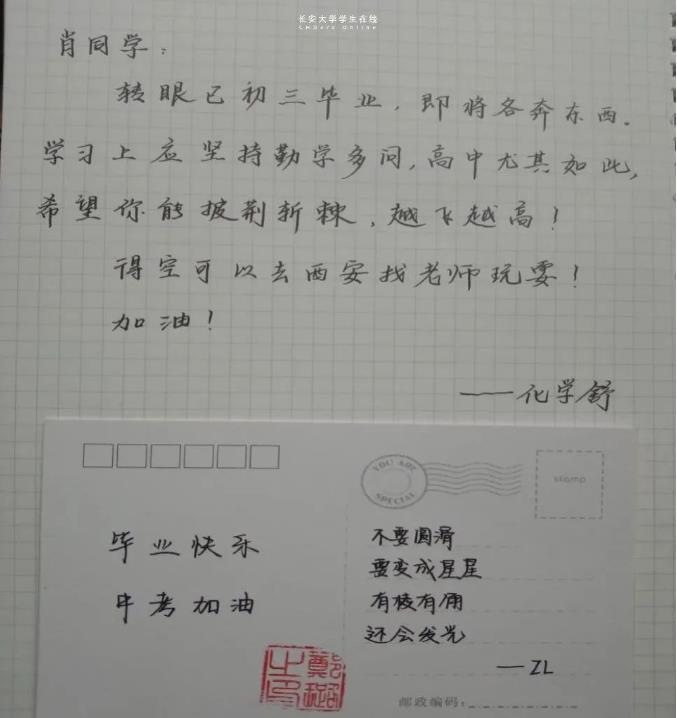 长安大学学生在线
CHDers Online
肖同学：
转眼已初三毕业，即将各奔东西。
学习上应坚持勤学多问，高中尤其如此，
希望你能披荆斩棘，越飞越高！
得空可以去西安找老师玩耍！
加油！
——化学舒
YOU ARE
SPECIAL
stamp
毕业快乐
中考加油
不要圆滑
要变成星星
有棱有角
还会发光
—ZL
邮政编码：